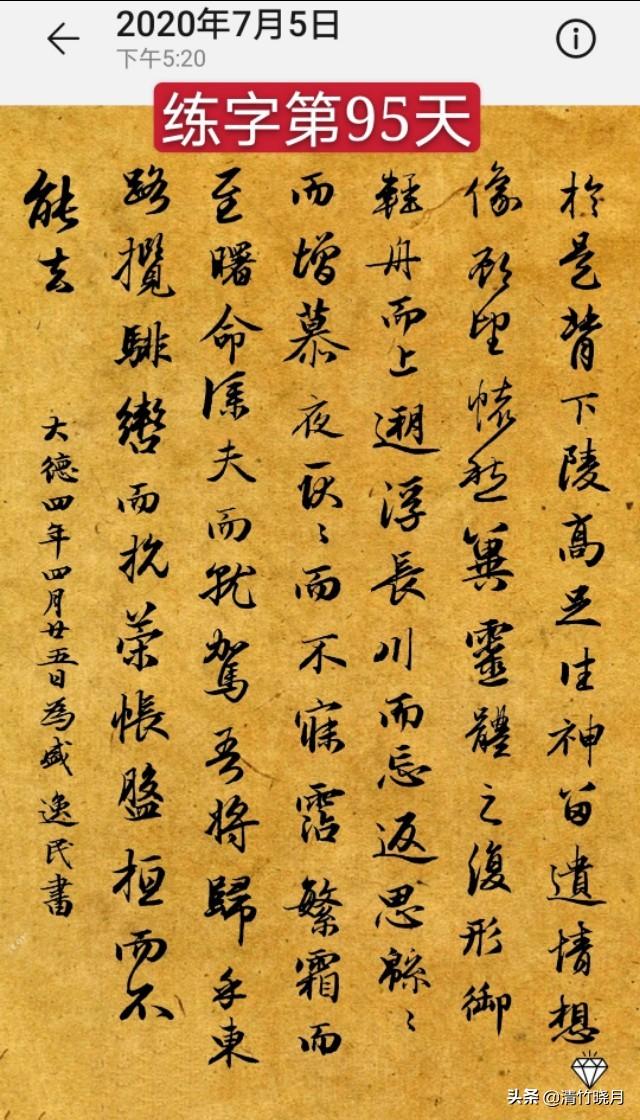 2020年7月5日
下午5:20
练字第95天
於是背下陵高足往神留遺情想
像顧望懷愁冀靈體之復形御
輕舟而上遡浮長川而忘返思緜〻
而增慕夜耿〻而不寐霑繁霜而
至曙命僕夫而就駕吾將歸乎東
路攬騑轡而抗策悵盤桓而不
能去
大德四年四月廿五日為盛逸民書
头条 @清竹晓月